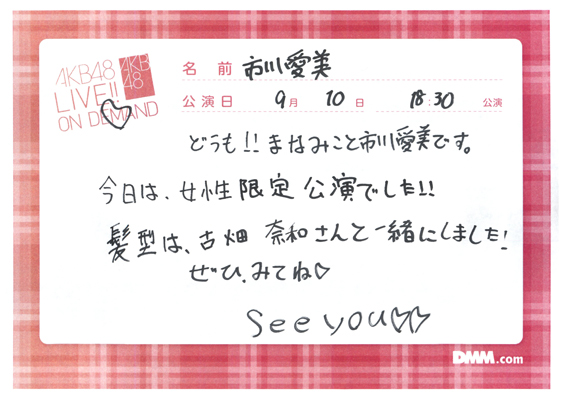 AKB48
LIVE!!
ON DEMAND
AKB
48
名前 市川愛美
公演日 9月 10日 18:30 公演
どうも!! まなみこと市川愛美です。
今日は、女性限定公演でした!!
髪型は、古畑 奈和さんと一緒にしました!
ぜひ、みてね♡
see you♡♡
DMM.com